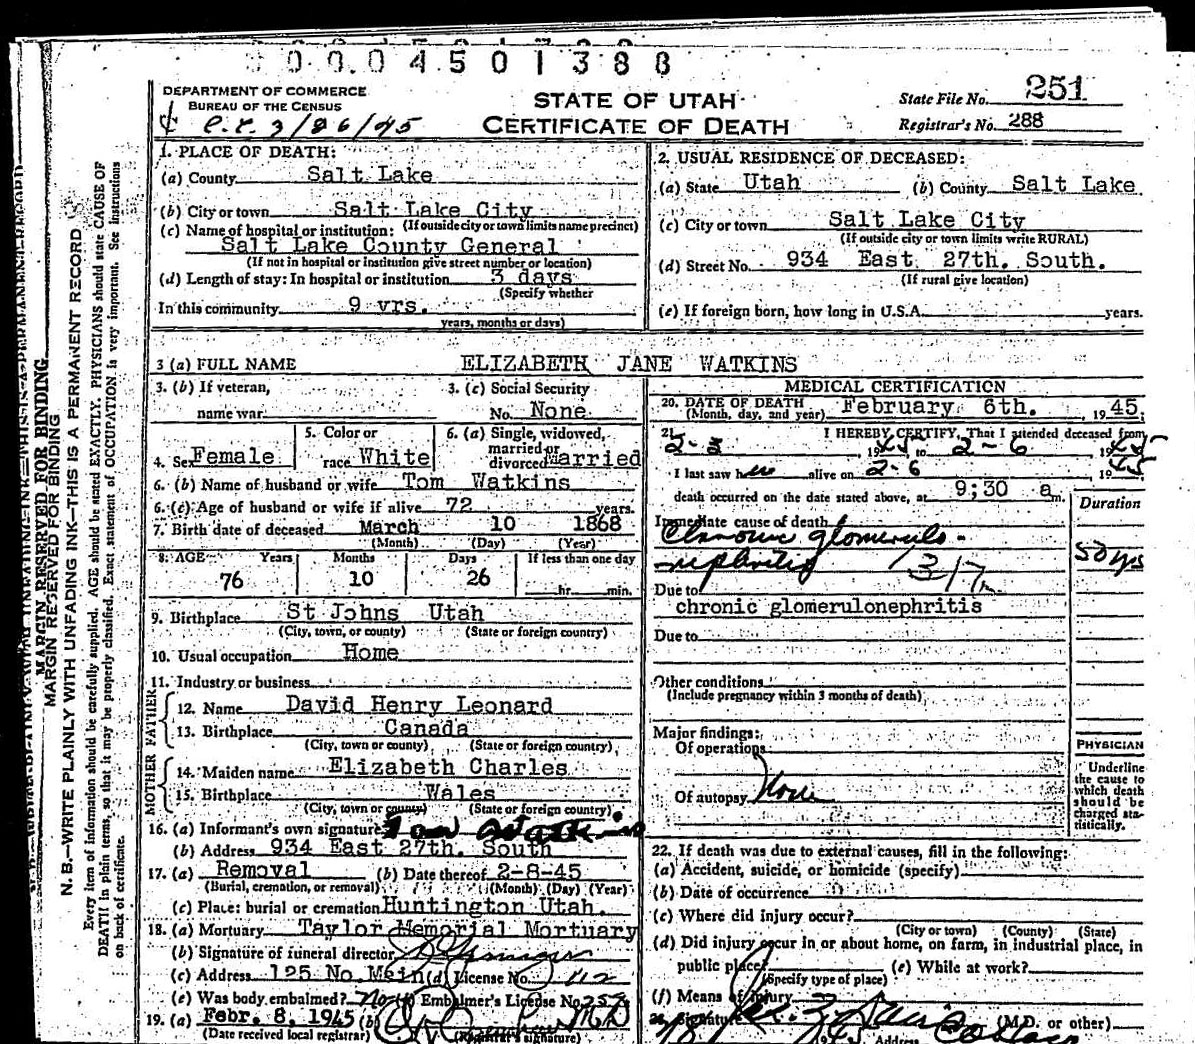 0004501388
DEPARTMENT OF COMMERCE
BUREAU OF THE CENSUS
STATE OF UTAH
CERTIFICATE OF DEATH
State File No. 251
Registrar's No. 288
1. PLACE OF DEATH:
(a) County Salt Lake
(b) City or town Salt Lake City
(If outside city or town limits name precinct)
(c) Name of hospital or institution:
Salt Lake County General
(If not in hospital or institution give street number or location)
(d) Length of stay: In hospital or institution 3 days
(Specify whether
In this community 9 yrs.
years, months or days)
2. USUAL RESIDENCE OF DECEASED:
(a) State Utah (b) County Salt Lake
(c) City or town Salt Lake City
(If outside city or town limits write RURAL)
(d) Street No. 934 East 27th. South.
(If rural give location)
(e) If foreign born, how long in U.S.A. years.
3 (a) FULL NAME ELIZABETH JANE WATKINS
3. (b) If veteran,
name war
3. (c) Social Security
No. None
4. Sex Female
5. Color or
race White
6. (a) Single, widowed,
married or
divorced Married
6. (b) Name of husband or wife Tom Watkins
6. (c) Age of husband or wife if alive 72 years.
7. Birth date of deceased March 10 1868
(Month) (Day) (Year)
8. AGE Years Months Days If less than one day
76 10 26 hr. min.
9. Birthplace St Johns Utah
(City, town, or county) (State or foreign country)
10. Usual occupation Home
11. Industry or business
FATHER
12. Name David Henry Leonard
13. Birthplace Canada
(City, town or county) (State or foreign country)
MOTHER
14. Maiden name Elizabeth Charles
15. Birthplace Wales
(City, town or county) (State or foreign country)
16. (a) Informant's own signature Tom Watkins
(b) Address 934 East 27th. South
17. (a) Removal (b) Date thereof 2-8-45
(Burial, cremation, or removal) (Month) (Day) (Year)
(c) Place: burial or cremation Huntington Utah.
18. (a) Mortuary Taylor Memorial Mortuary
(b) Signature of funeral director
(c) Address 125 No Main (d) License No. 112
(e) Was body embalmed? No (f) Embalmer's License No. 253
19. (a) Febr. 8, 1945 (b)
(Date received local registrar) (Registrar's signature)
MEDICAL CERTIFICATION
20. DATE OF DEATH
(Month, day, and year) February 6th. , 1945.
21. I HEREBY CERTIFY, That I attended deceased from
2-3 , 1945 to 2-6 1945
I last saw her alive on 2-6 1945
death occurred on the date stated above, at 9;30 a m.
Duration
Immediate cause of death
Chronic glomerulo-
nephritis
50 yrs
Due to
chronic glomerulonephritis
Due to
Other conditions
(Include pregnancy within 3 months of death)
Major findings:
Of operations
Of autopsy None
PHYSICIAN
Underline
the cause to
which death
should be
charged sta-
tistically.
22. If death was due to external causes, fill in the following:
(a) Accident, suicide, or homicide (specify)
(b) Date of occurrence
(c) Where did injury occur?
(City or town) (County) (State)
(d) Did injury occur in or about home, on farm, in industrial place, in
public place?
(Specify type of place)
(e) While at work?
(f) Means of injury
Signature (M.D. or other)
Address
MARGIN RESERVED FOR BINDING
MARGIN RESERVED FOR BINDING
N. B.—WRITE PLAINLY WITH UNFADING INK—THIS IS A PERMANENT RECORD
Every item of information should be carefully supplied. AGE should be stated EXACTLY. PHYSICIANS should state CAUSE OF
DEATH in plain terms, so that it may be properly classified. Exact statement of OCCUPATION is very important. See Instructions
on back of certificate.